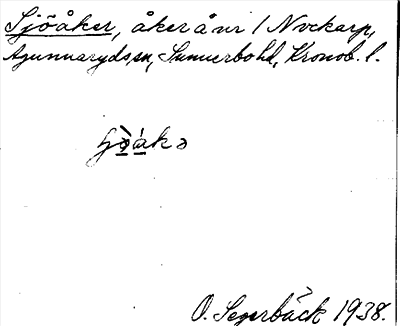 Sjöåker, åker å nr 1 Nockarp,
Agunnaryds sn, Sunnerbo hd, Kronob. l.
O. Segerbäck 1938.